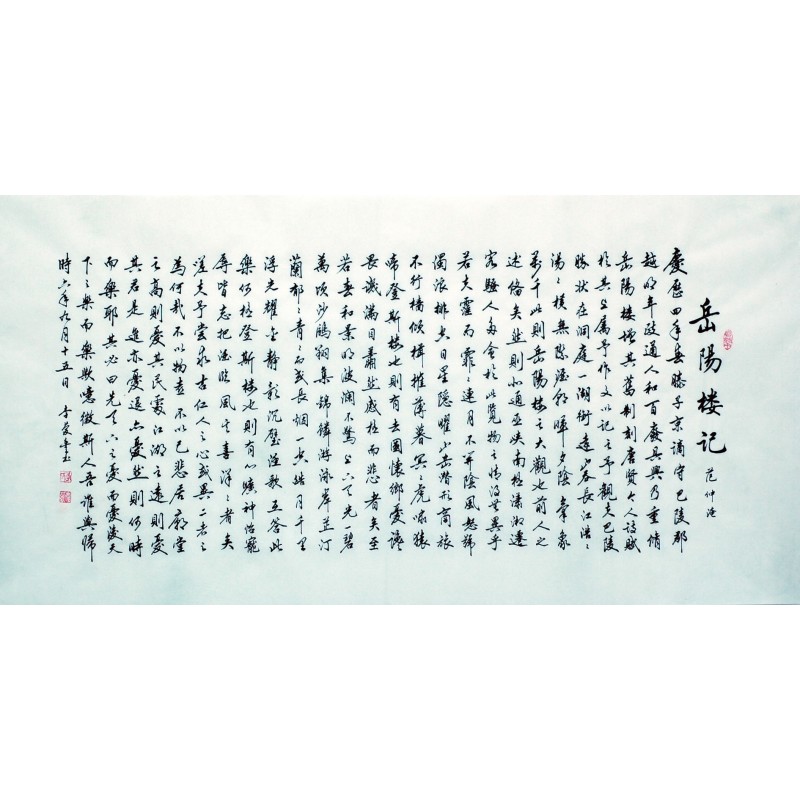 岳陽楼記
范仲淹
慶歷四年春滕子京謫守巴陵郡
越明年政通人和百廢具興乃重脩
岳陽樓增其舊制刻唐賢今人詩賦
於其上屬予作文以記之予觀夫巴陵
勝狀在洞庭一湖銜遠山吞長江浩〻
湯〻橫無際涯朝暉夕陰氣象
萬千此則岳陽樓之大觀也前人之
述備矣然則北通巫峽南極瀟湘遷
客騷人多會於此覽物之情得無異乎
若夫霪雨霏〻連月不開陰風怒號
濁浪排空日星隱曜山岳潛形商旅
不行檣傾楫摧薄暮冥〻虎嘯猿
啼登斯樓也則有去國懷鄉憂讒
畏譏滿目蕭然感極而悲者矣至
若春和景明波瀾不驚上下天光一碧
萬頃沙鷗翔集錦鱗游泳岸芷汀
蘭郁〻青〻而或長烟一空皓月千里
浮光耀金靜影沉璧漁歌互答此
樂何極登斯樓也則有心曠神怡寵
辱皆忘把酒臨風其喜洋〻者矣
嗟夫予嘗求古仁人之心或異二者之
為何哉不以物喜不以己悲居廟堂
之高則憂其民處江湖之遠則憂
其君是進亦憂退亦憂然則何時
而樂耶其必曰先天下之憂而憂後天
下之樂而樂歟噫微斯人吾誰與歸
時六年九月十五日